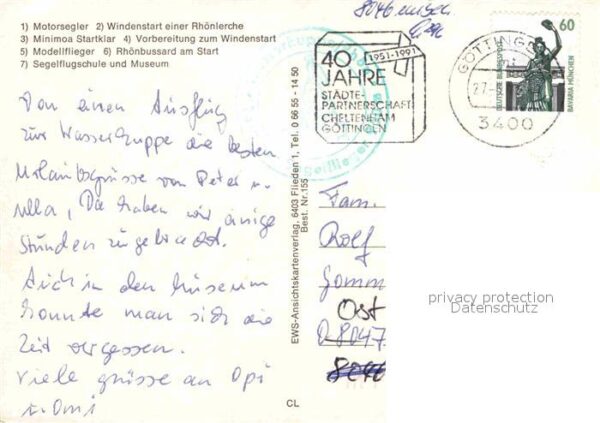 1) Motorsegler   2) Windenstart einer Rhönlerche
3) Minimoa Startklar   4) Vorbereitung zum Windenstart
5) Modellflieger   6) Rhönbussard am Start
7) Segelflugschule und Museum
Von einen Ausflug
zur Wasserkuppe die besten
Urlaubsgrüsse von Peter u.
Ulla, Da haben wir einige
Stunden zugebracht.
Auch in den Museum
konnte man sich die
Zeit vergessen.
Viele grüsse an Opi
u. Omi
EWS-Ansichtskartenverlag, 6403 Flieden 1, Tel. 0 66 55 - 14 50
Best. Nr. 155
CL
8046
1951-1991
40
JAHRE
STÄDTE-
PARTNERSCHAFT
CHELTENHAM
GÖTTINGEN
GÖTTINGEN
3400
60
DEUTSCHE BUNDESPOST
BAVARIA MÜNCHEN
Fam.
Rolf
Gomm
Ost
O-8047
8046
privacy protection
Datenschutz